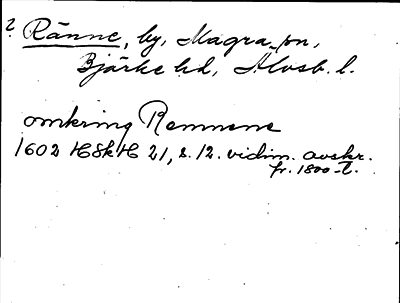 ? Ränne, by, Magra sn,
Bjärke hd, Älvsb. l.
omkring Remnene
1602 HSkH 21, s. 12. vidim. avskr.
fr. 1800-t.